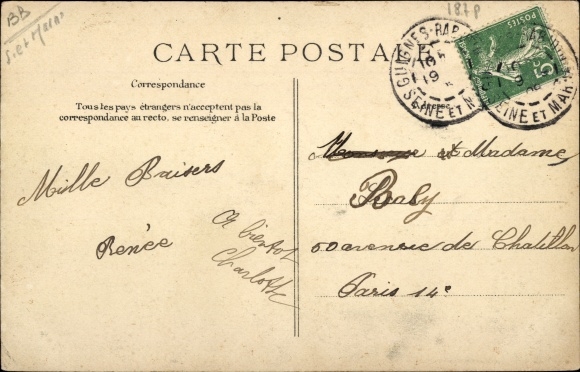 187 P
BB
S. et Marn
CARTE POSTALE
Correspondance
Tous les pays étrangers n'acceptent pas la
correspondance au recto, se renseigner à la Poste
GUIGNES-RAB
SEINE ET M
SEINE ET MAR
POSTES
5c
Mille Baisers
Renée
A bientot
Charlotte
Monsieur et Madame
Baly
50 avenue de Chatillon
Paris 14e